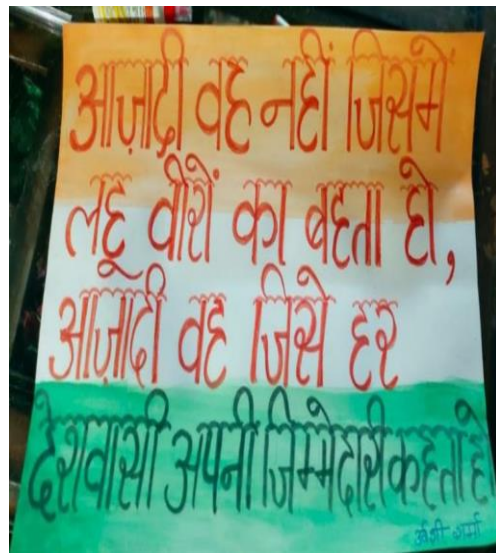 आज़ादी वह नहीं जिसमें
लहू वीरों का बहता हो,
आज़ादी वह जिसे हर
देशवासी अपनी जिम्मेदारी कहता हो
शर्मा